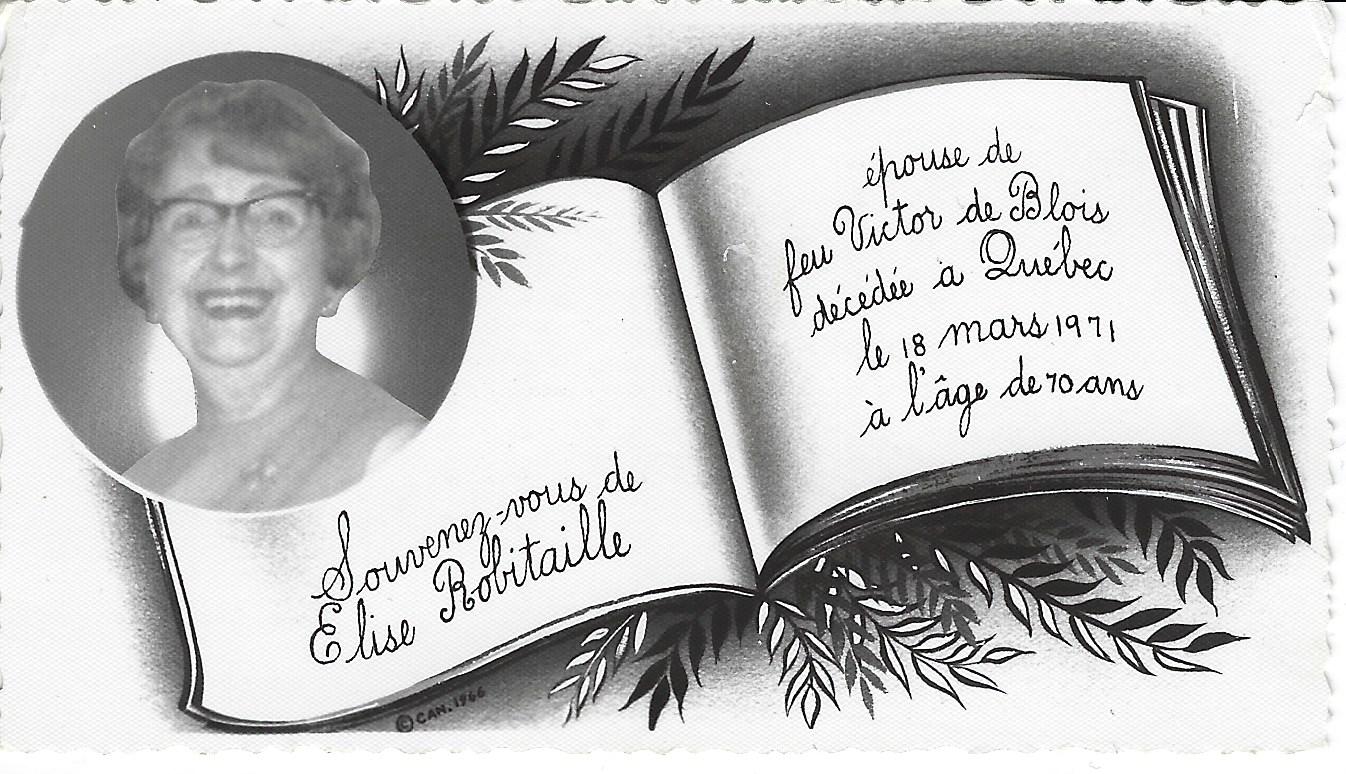 Souvenez-vous de
Elise Robitaille
épouse de
feu Victor de Blois
décédée a Québec
le 18 mars 1971
à l'âge de 70 ans
© CAN. 1966